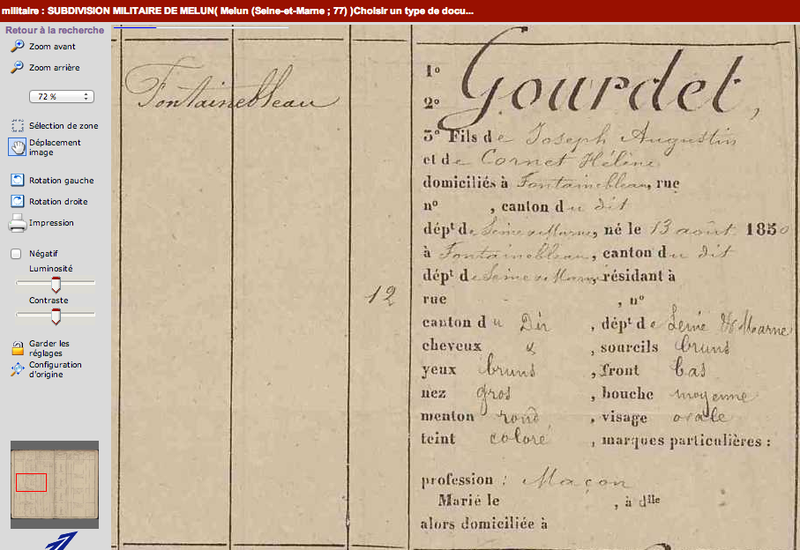 militaire : SUBDIVISION MILITAIRE DE MELUN( Melun (Seine-et-Marne ; 77) )Choisir un type de docu...
Retour à la recherche
Zoom avant
Zoom arrière
72 %
Sélection de zone
Déplacement
image
Rotation gauche
Rotation droite
Impression
Négatif
Luminosité
Contraste
Garder les
réglages
Configuration
d'origine
Fontainebleau
12
1º Gourdet,
2º
3º Fils de Joseph Augustin
et de Cornet Hélène
domiciliés à Fontainebleau, rue
nº , canton du dit
dépt de Seine & Marne, né le 13 août 1850
à Fontainebleau, canton du dit
dépt de Seine & Marne, résidant à
rue , nº
canton du Dit , dépt de Seine & Marne
cheveux , sourcils bruns
yeux bruns , front bas
nez gros , bouche moyenne
menton rond , visage ovale
teint coloré , marques particulières :
profession : Maçon
Marié le , à dlle
alors domiciliée à